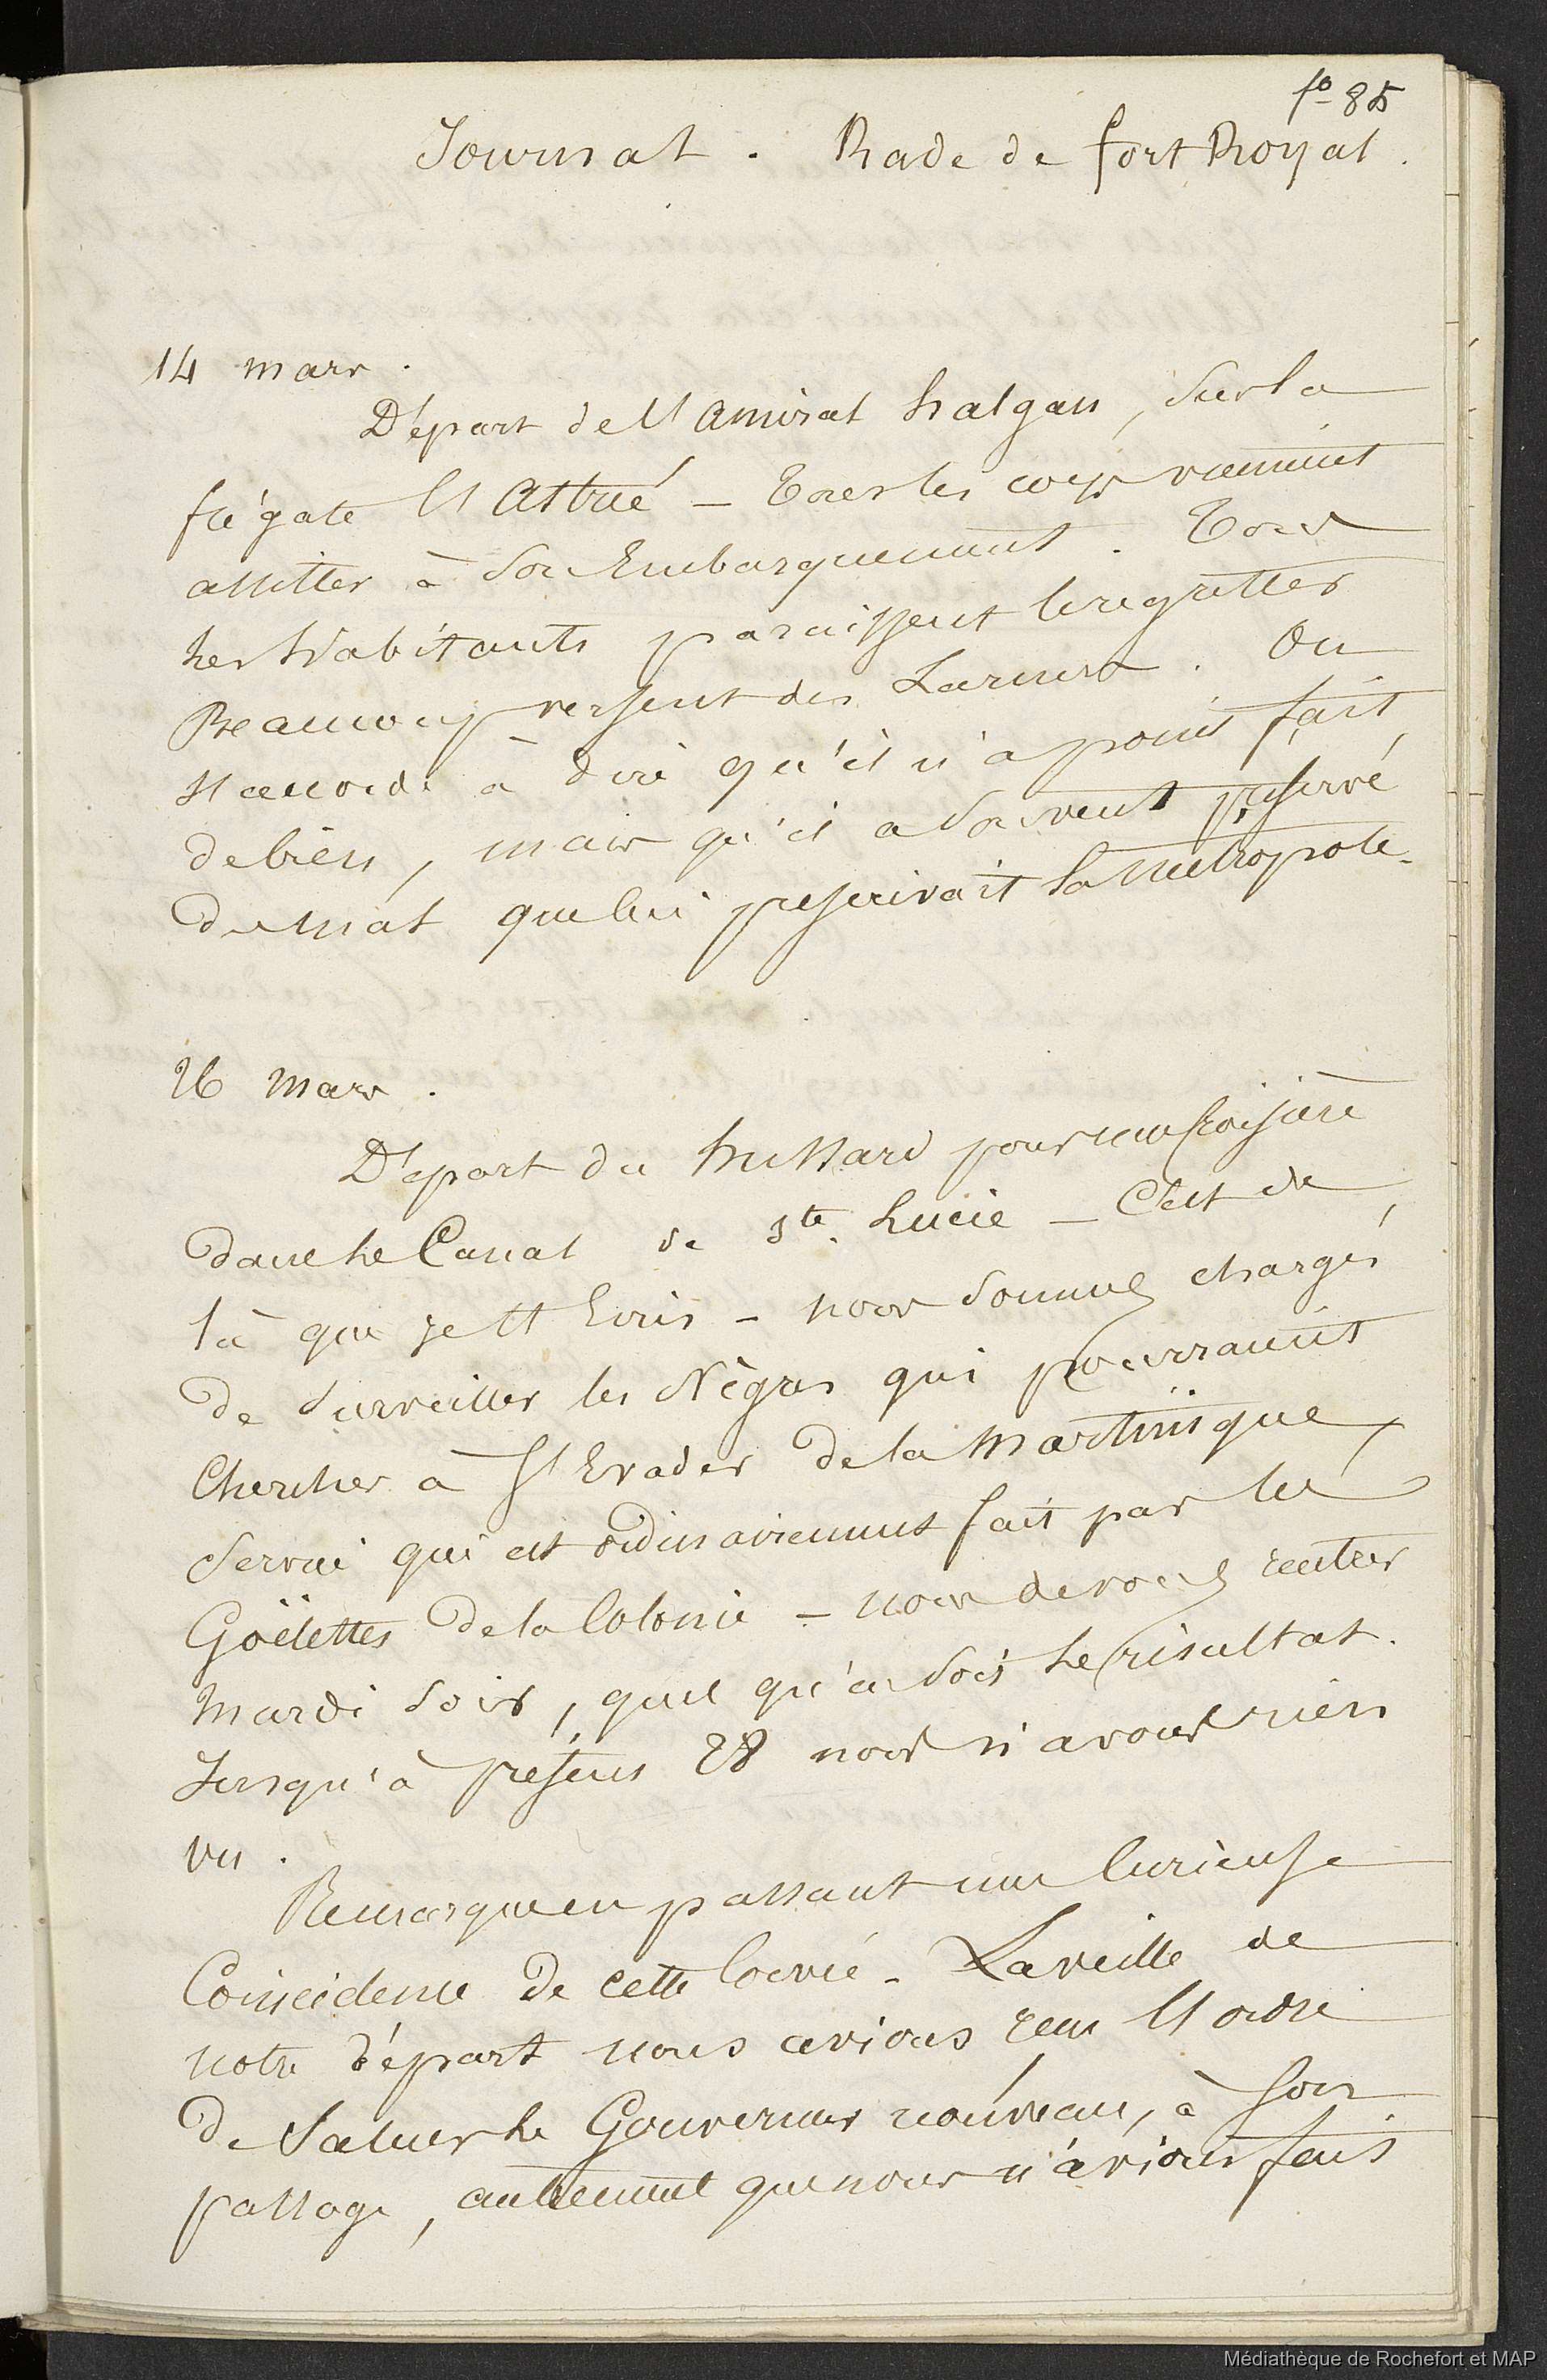 fo 85
Journal. Rade de fort Royal.
14 mars.
Départ de l'amiral halgan, Sur la
frégate l'Astrée — Tous les corps viennent
assister à Son Embarquement. Tous
les habitants paraissent le regretter
Beaucoup versent des Larmes. On
s'accorde à dire qu'il n'a point fait
de bien, mais qu'il a Souvent préservé
du mal que lui prescrivait la métropole.
26 mars.
Départ du hussard pour une Croisière
dans le Canal de Ste Lucie — C'est de
là que je t'Ecris — nous Sommes chargés
de Surveiller les Nègres qui pourraient
Chercher à S'Evader de la Martinique,
Service qui est ordinairement fait par les
Goëlettes de la Colonie — nous devons rentrer
Mardi Soir, quel qu'en Soit le résultat.
Jusqu'à présent 28 nous n'avons rien
vu.
Remarque en passant une Curieuse
Coincidence de cette Corvée — La veille de
notre départ nous avions reçu l'ordre
de Saluer le Gouverneur nouveau, à Son
passage, autrement que nous n'avions fait
Médiathèque de Rochefort et MAP